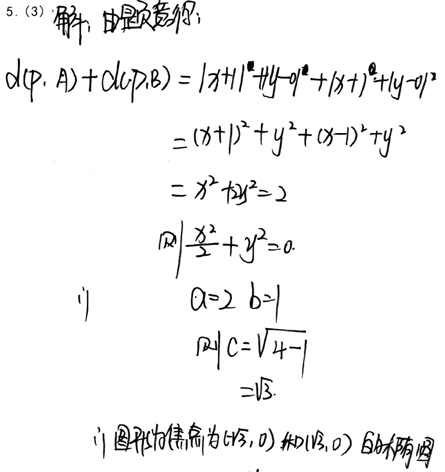 5. (3) 解, 由题意得:
d(P, A) + d(P, B) = |x+1|² + |y-0|² + |x+1|² + |y-0|²
= (x+1)² + y² + (x-1)² + y²
= x² + 2y² = 2
则 x²/2 + y² = 0.
a=2 b=1
则 c = √4-1
= √3.
∴ 图形为焦点为(-√3, 0) 和 (√3, 0) 的椭圆